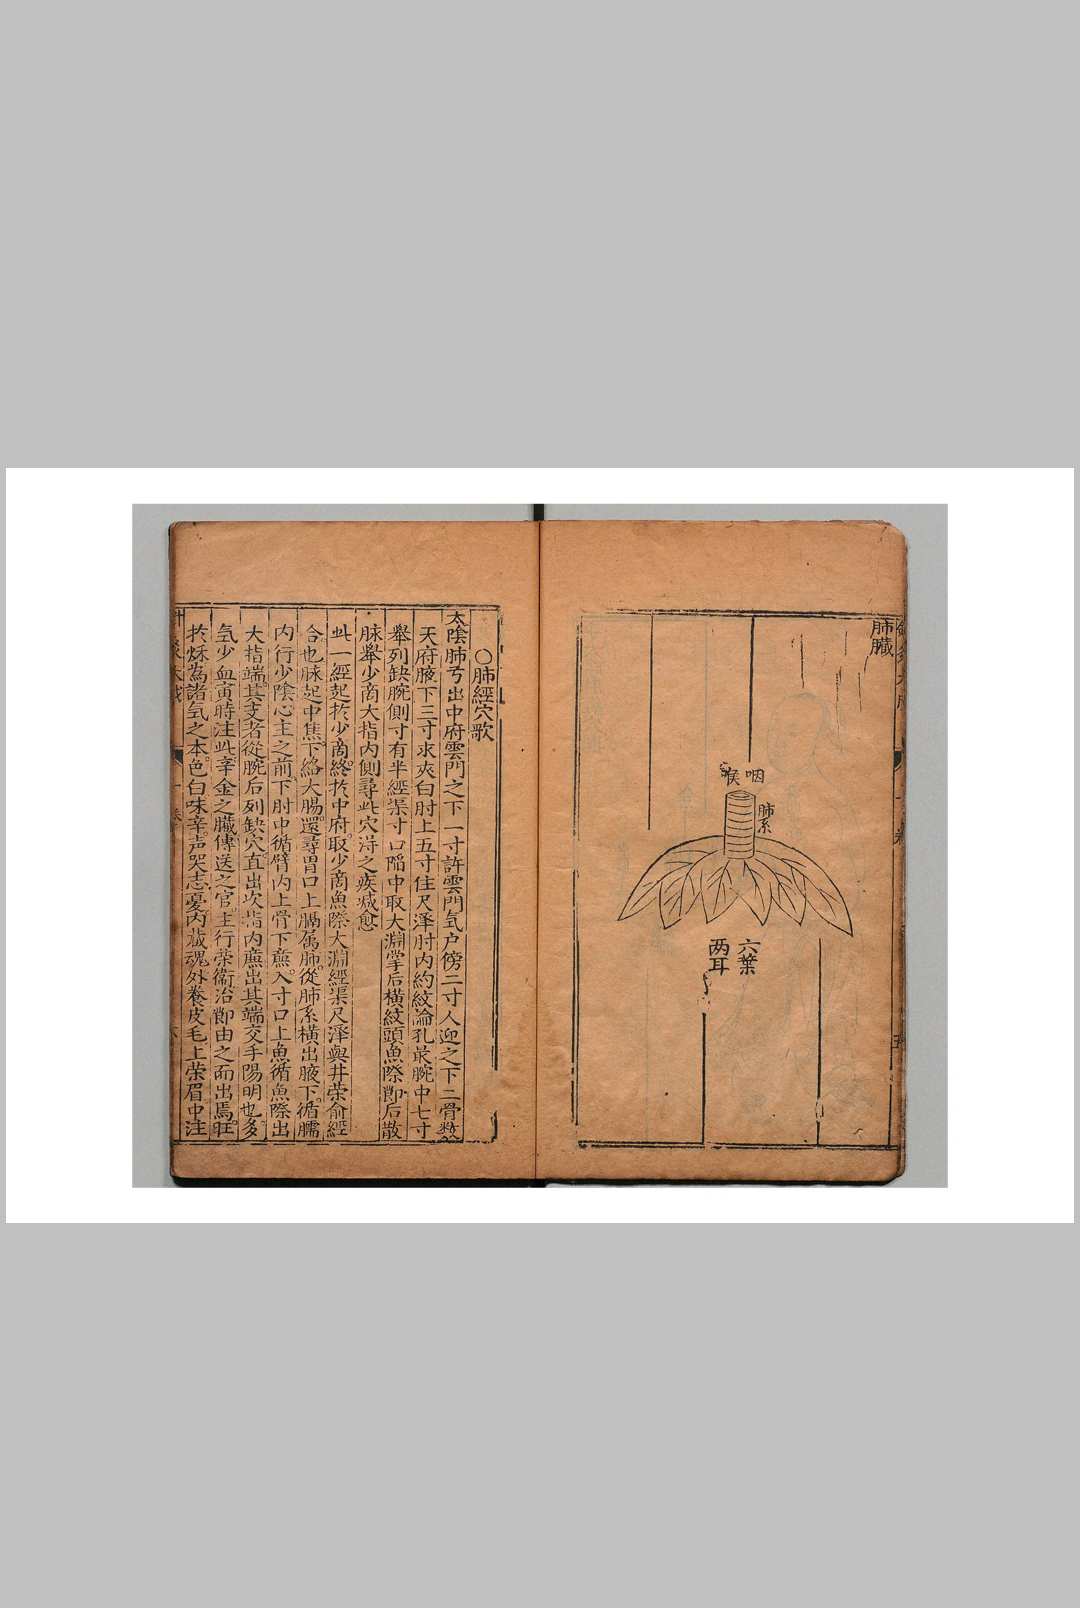 肺臟
咽喉
肺系
六葉
两耳
○肺經穴歌
太陰肺兮出中府雲門之下一寸許雲門气户傍二寸人迎之下二骨数
天府腋下三寸求夾白肘上五寸住尺泽肘内約紋論孔最腕中七寸
舉列缺腕側寸有半經渠寸口陥中取大淵掌后横紋頭魚際節后散
脉舉少商大指内側尋此穴淂之疾减愈
此一經起於少商終於中府取少商魚際大淵經渠尺泽與井荣俞經
合也脉起中焦下絡大腸還尋胃口上膈属肺從肺系横出腋下循臑
内行少陰心主之前下肘中循臂内上骨下㢘入寸口上魚循魚際出
大指端其支者從腕后列缺穴直出次指内㢘出其端交手陽明也多
氣少血寅時注此辛金之臓傳送之官主行荣衞治節由之而出焉旺
於秋為諸氣之本色白味辛声哭志憂内藏魂外養皮毛上荣眉中注